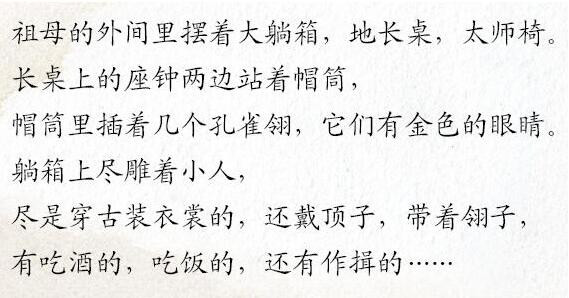 祖母的外间里摆着大躺箱，地长桌，太师椅。
长桌上的座钟两边站着帽筒，
帽筒里插着几个孔雀翎，它们有金色的眼睛。
躺箱上尽雕着小人，
尽是穿古装衣裳的，还戴顶子，带着翎子，
有吃酒的，吃饭的，还有作揖的……